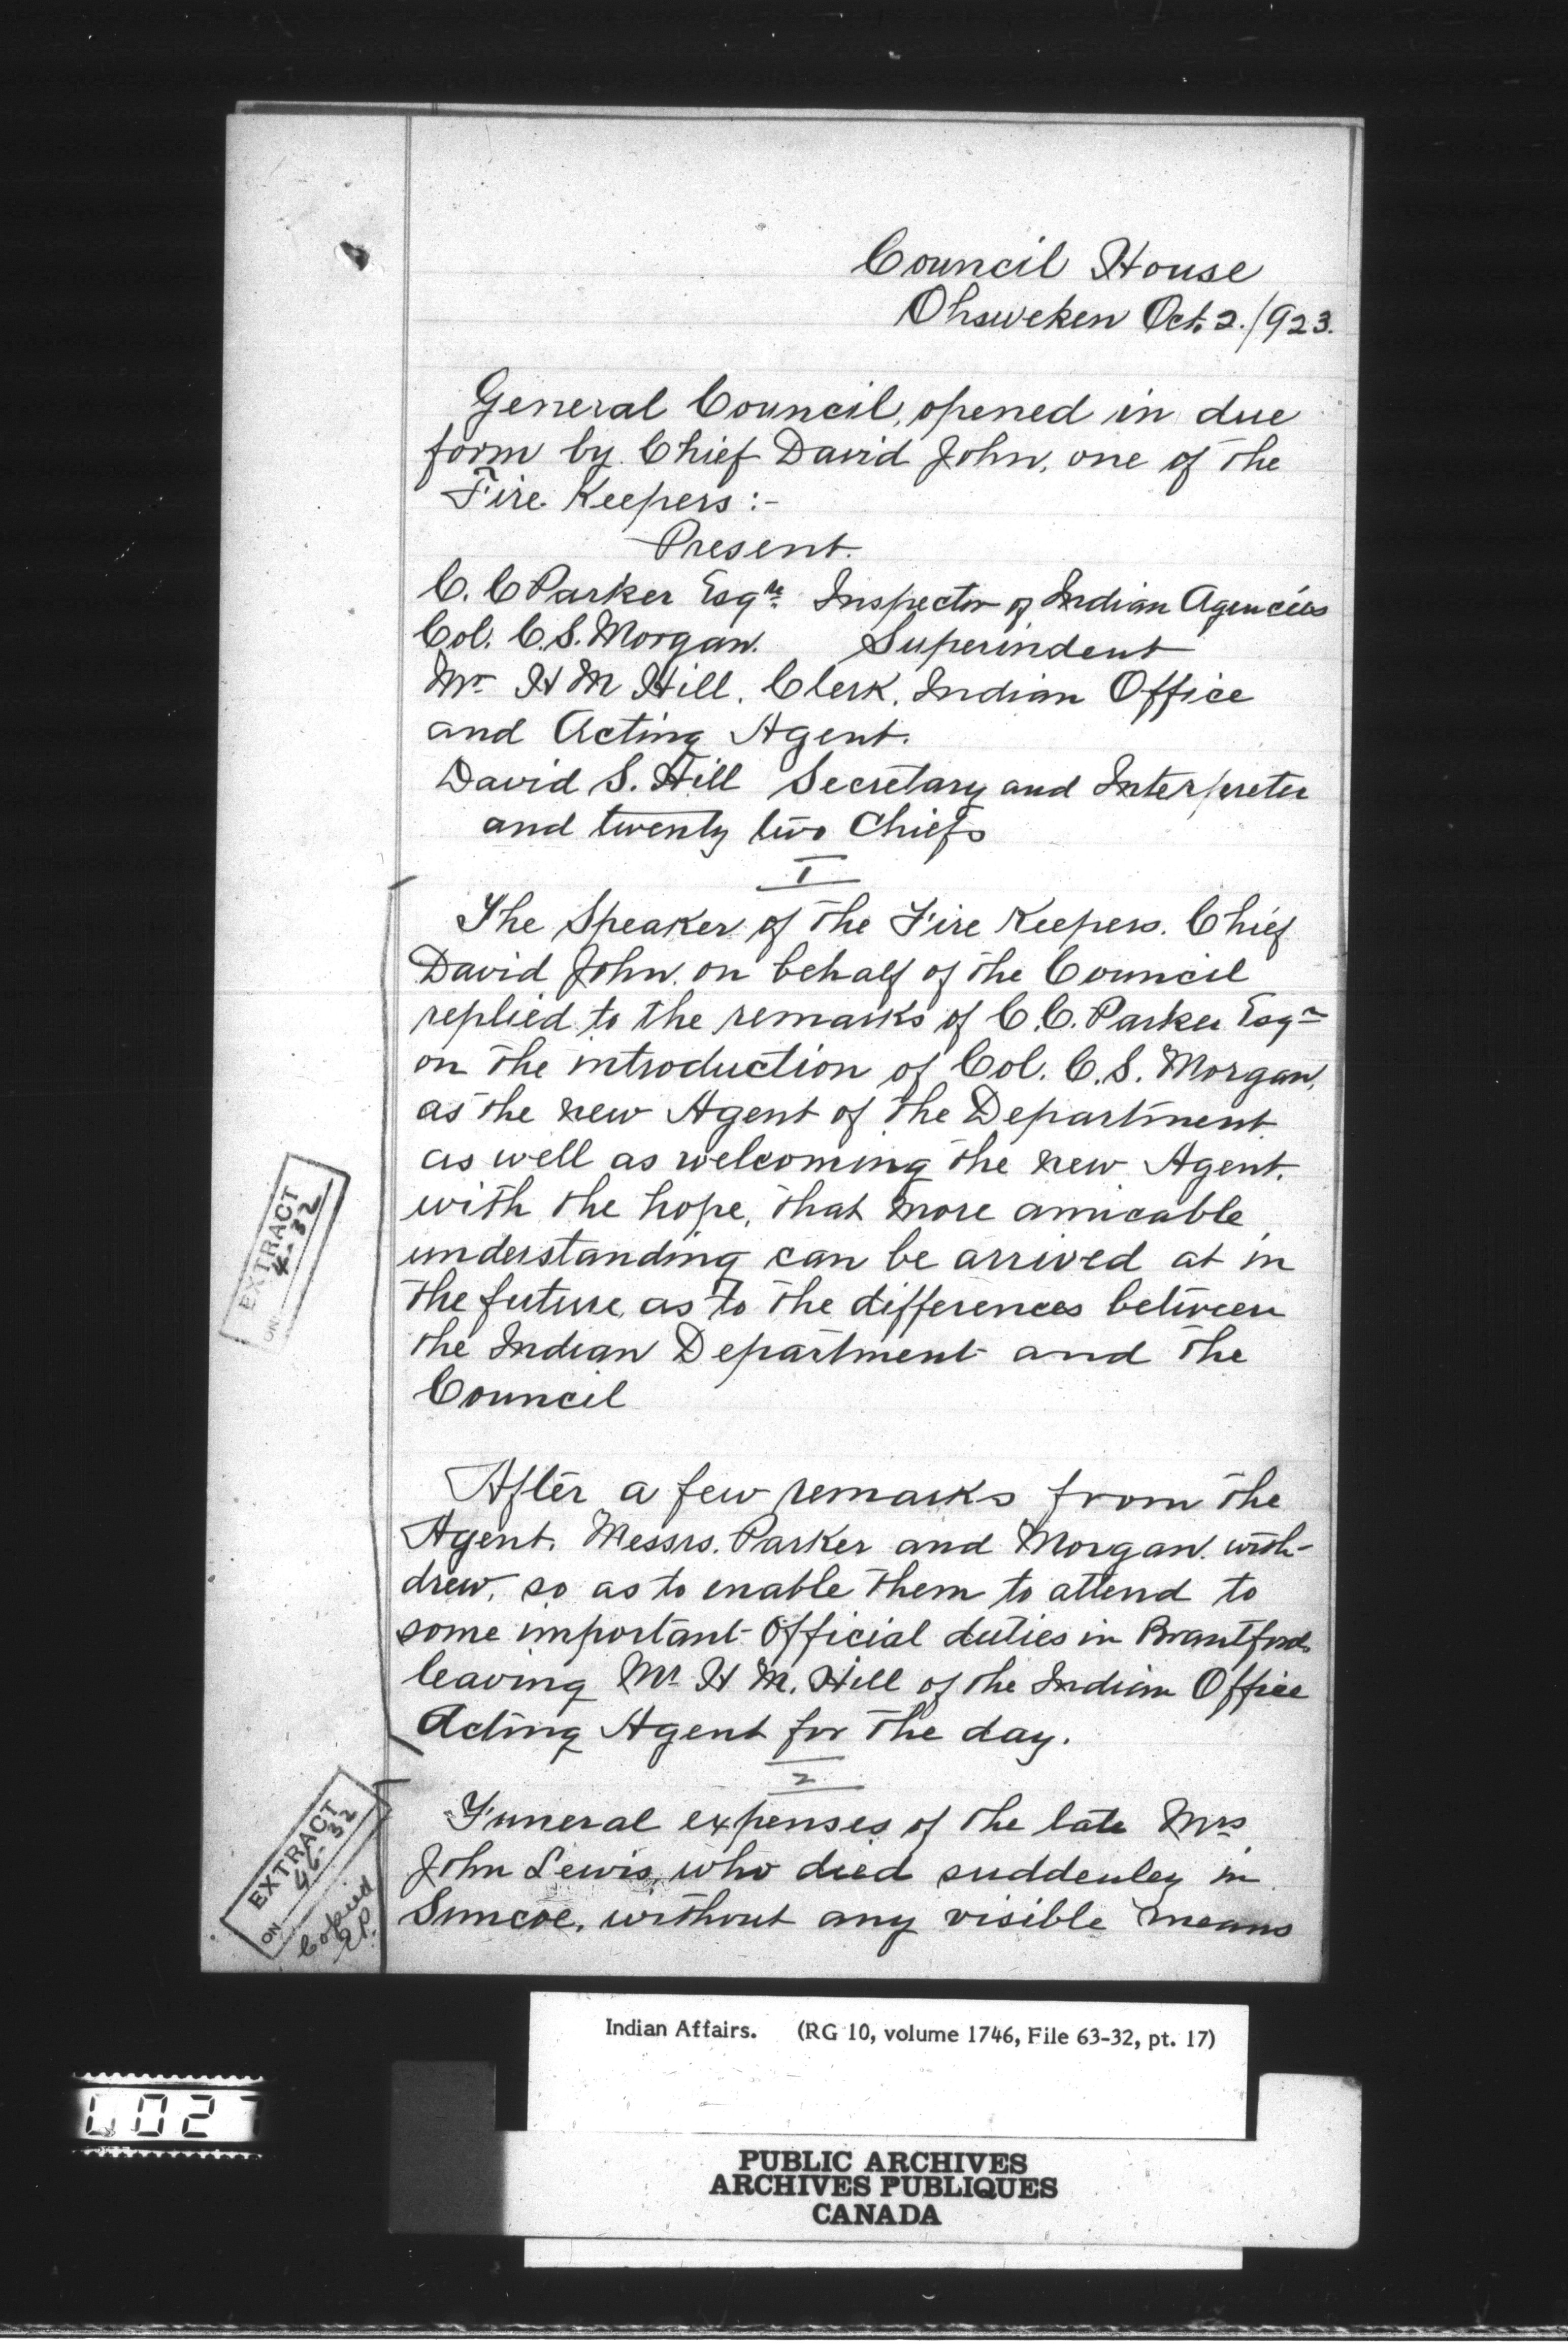 Council House
Ohsweken Oct. 2. /923.
General Council, opened in due
form by Chief David John, one of the
Fire Keepers :-
Present.
C. C Parker Esqre Inspector of Indian Agencies
Col. C. S. Morgan. Superindent
Mr H M Hill. Clerk. Indian Office
and Acting Agent.
David S. Hill Secretary and Interpreter
and twenty two Chiefs
I
The Speaker of the Fire Keepers. Chief
David John. on behalf of the Council
replied to the remarks of C. C. Parker Esqr
on the introduction of Col. C. S. Morgan,
as the new Agent of the Department
as well as welcoming the new Agent.
with the hope, that more amicable
understanding can be arrived at in
the future, as to the differences between
the Indian Department and the
Council
After a few remarks from the
Agent. Messrs. Parker and Morgan. with-
drew, so as to enable them to attend to
some important Official duties in Brantford.
leaving Mr H M. Hill of the Indian Office
Acting Agent for the day.
2
Funeral expenses of the late Mrs
John Lewis, who died suddenley in
Simcoe, without any visible means
EXTRACT
4-32
ON
EXTRACT
46-32
ON
Copied
EP.
Indian Affairs. (RG 10, volume 1746, File 63-32, pt. 17)
PUBLIC ARCHIVES
ARCHIVES PUBLIQUES
CANADA